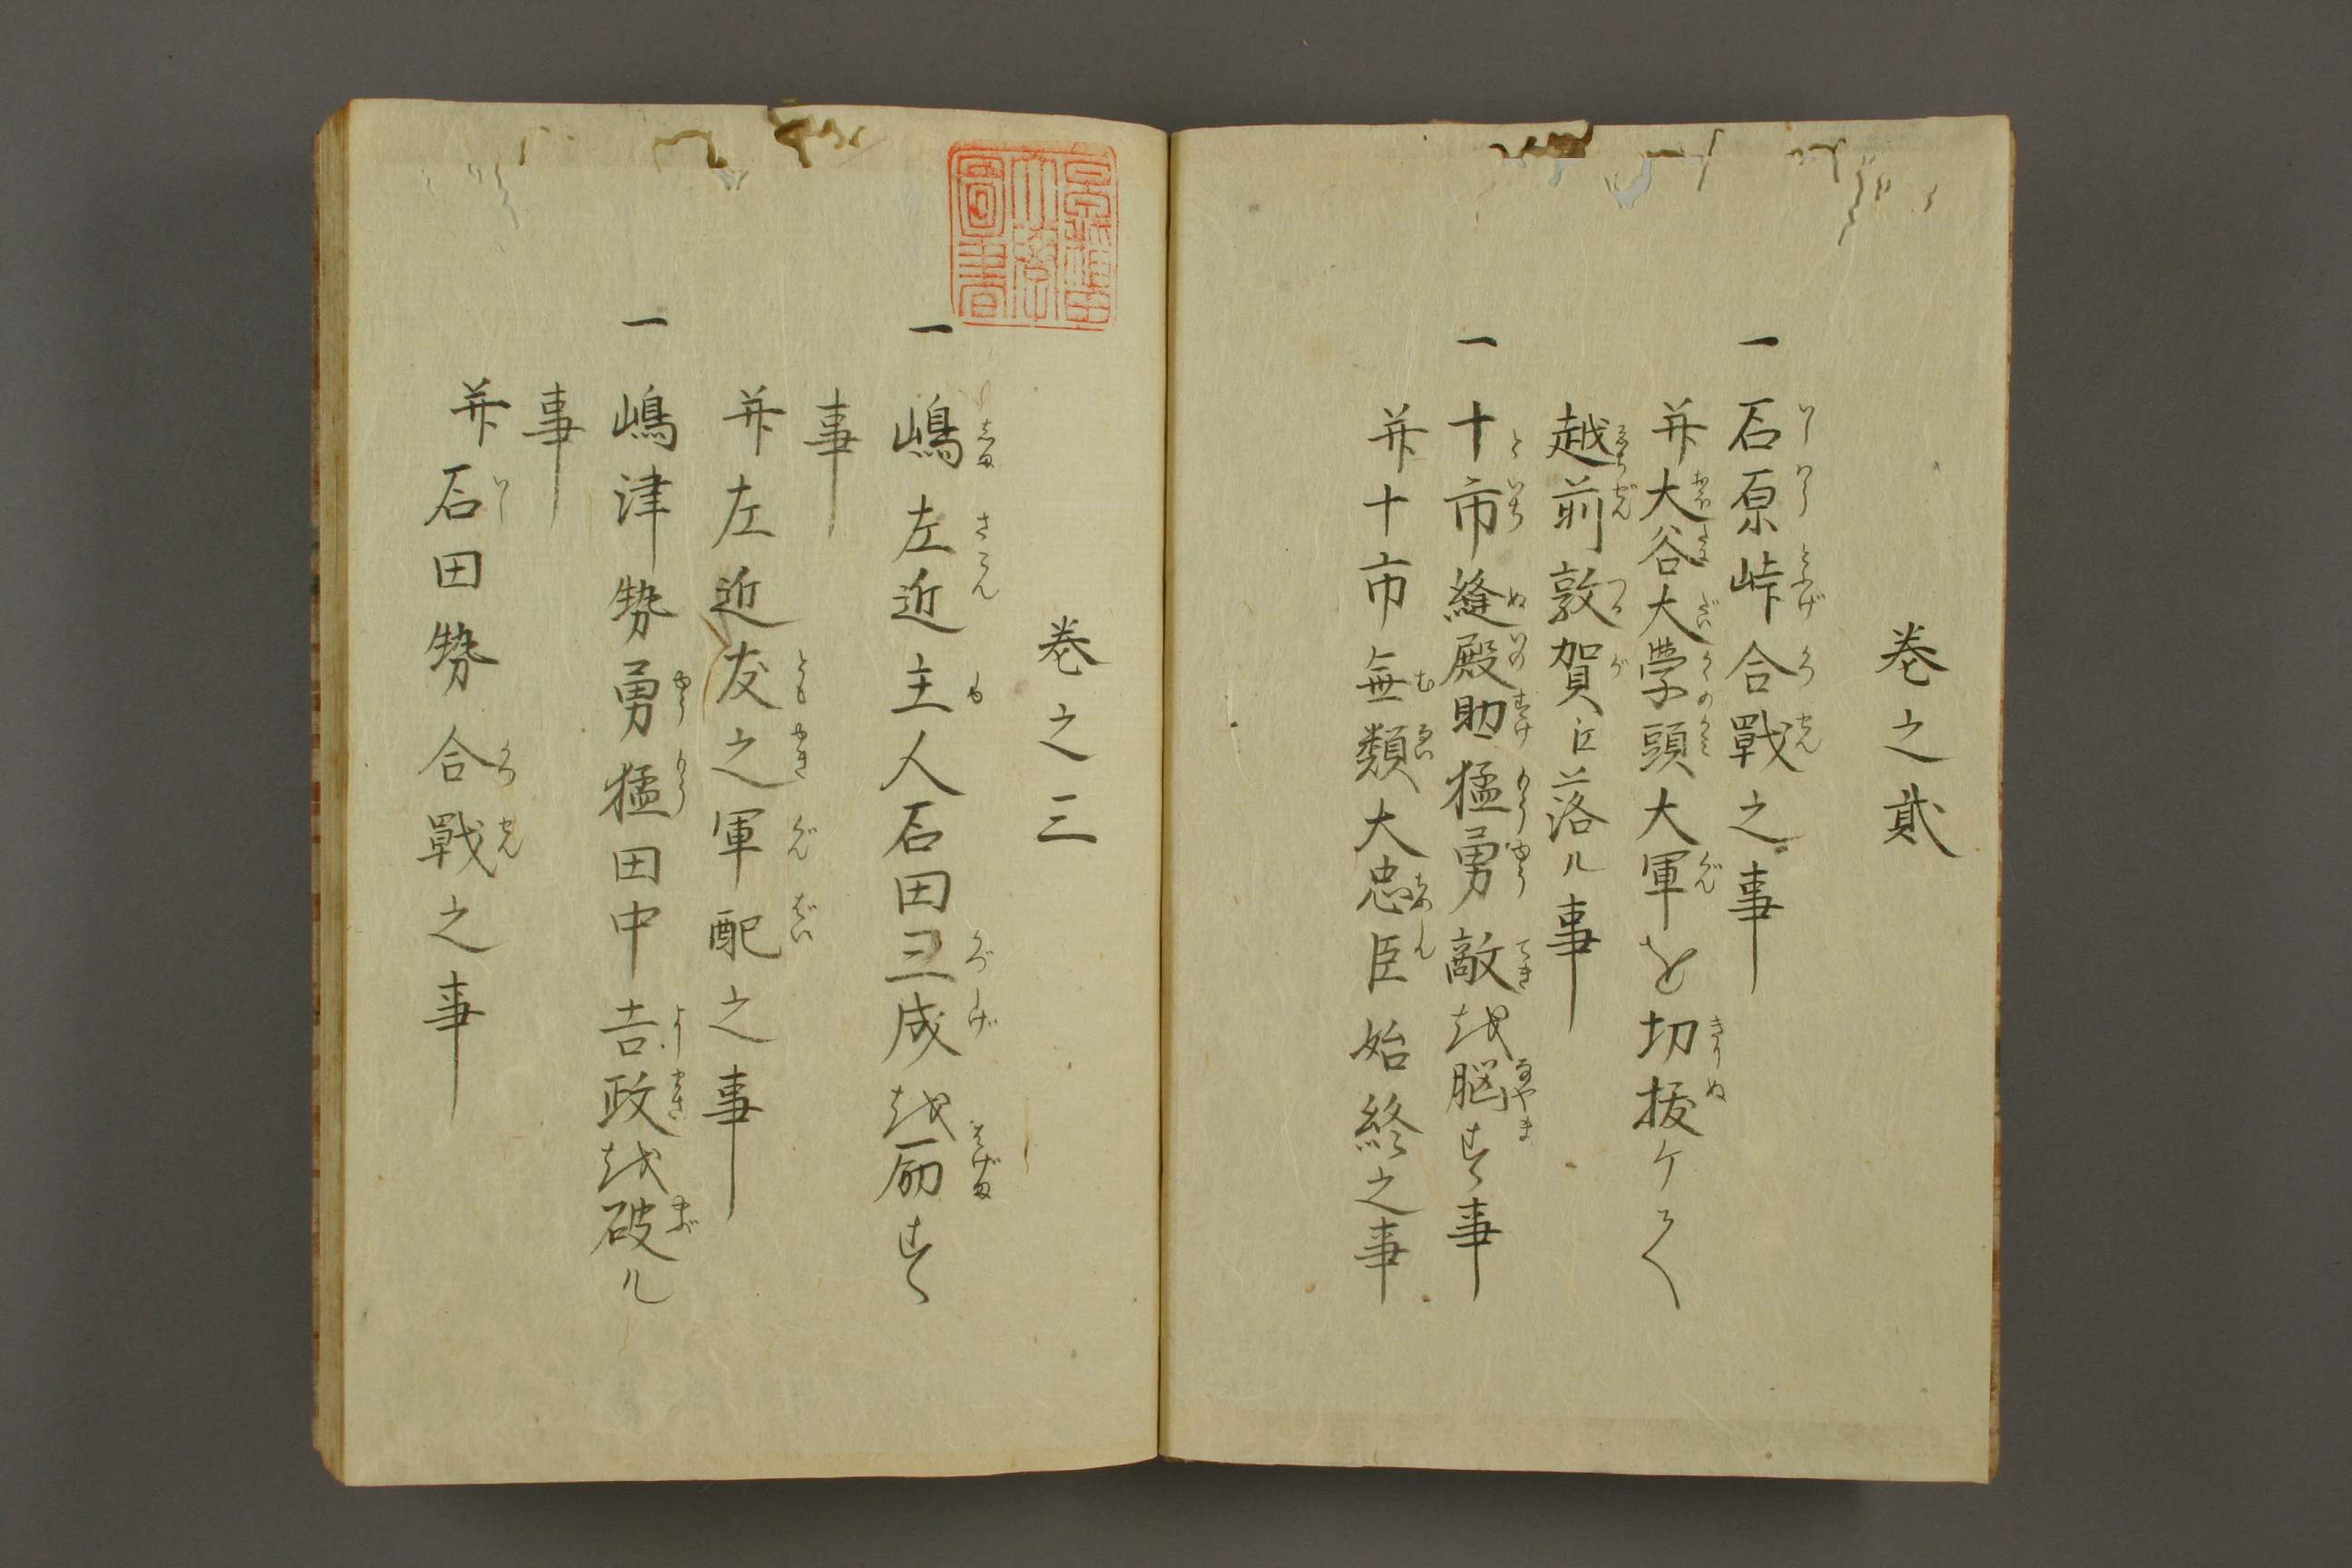 巻之貳
一石原峠合戰之事
并大谷大学頭大軍を切抜ケて
越前敦賀江落ル事
一十市縫殿助猛勇敵越脳す事
并十市無類大忠臣始終之事
巻之三
一嶋左近主人石田三成越励す
事
并左近友之軍配之事
一嶋津勢勇猛田中吉政越破ル
事
并石田勢合戰之事